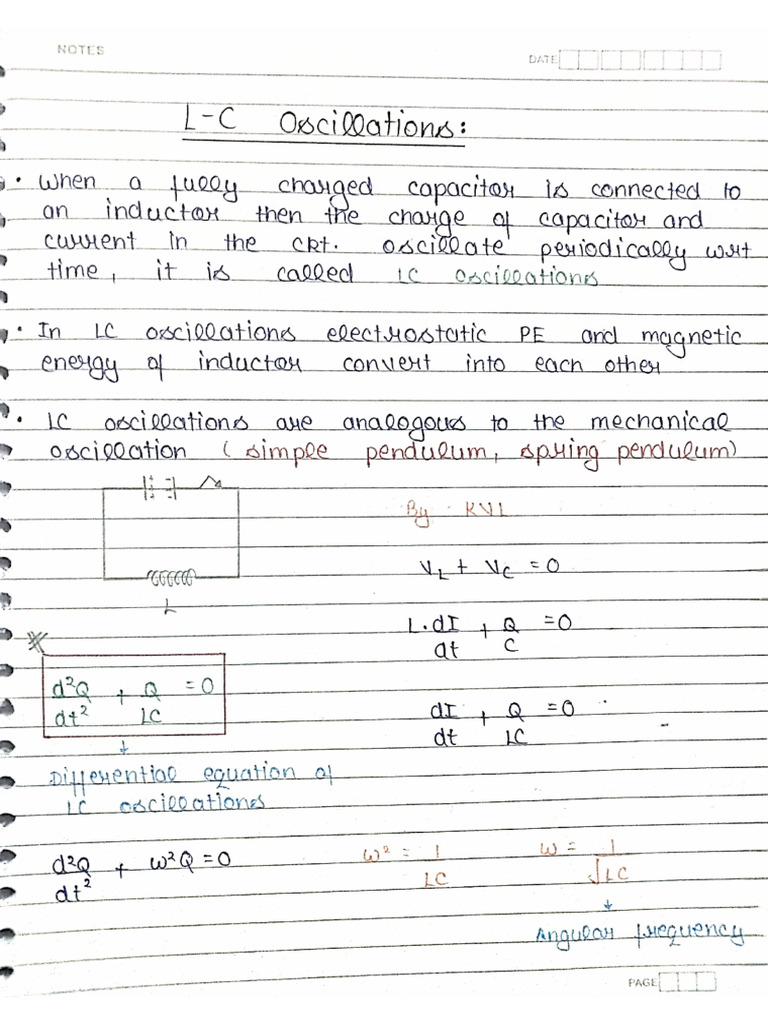 NOTES
DATE
L-C Oscillations:
• When a fully charged capacitor is connected to
an inductor then the charge of capacitor and
current in the CRT. oscillate periodically wrt
time, it is called LC oscillations
• In LC oscillations electrostatic PE and magnetic
energy of inductor convert into each other
• LC oscillations are analogous to the mechanical
oscillation (simple pendulum, spring pendulum)
By KVL
L
V_L + V_C = 0
L.dI/dt + Q/C = 0
d²Q/dt² + Q/LC = 0
dI/dt + Q/LC = 0
Differential equation of
LC oscillations
d²Q/dt² + ω²Q = 0 ω² = 1/LC ω = 1/√LC
Angular frequency
PAGE